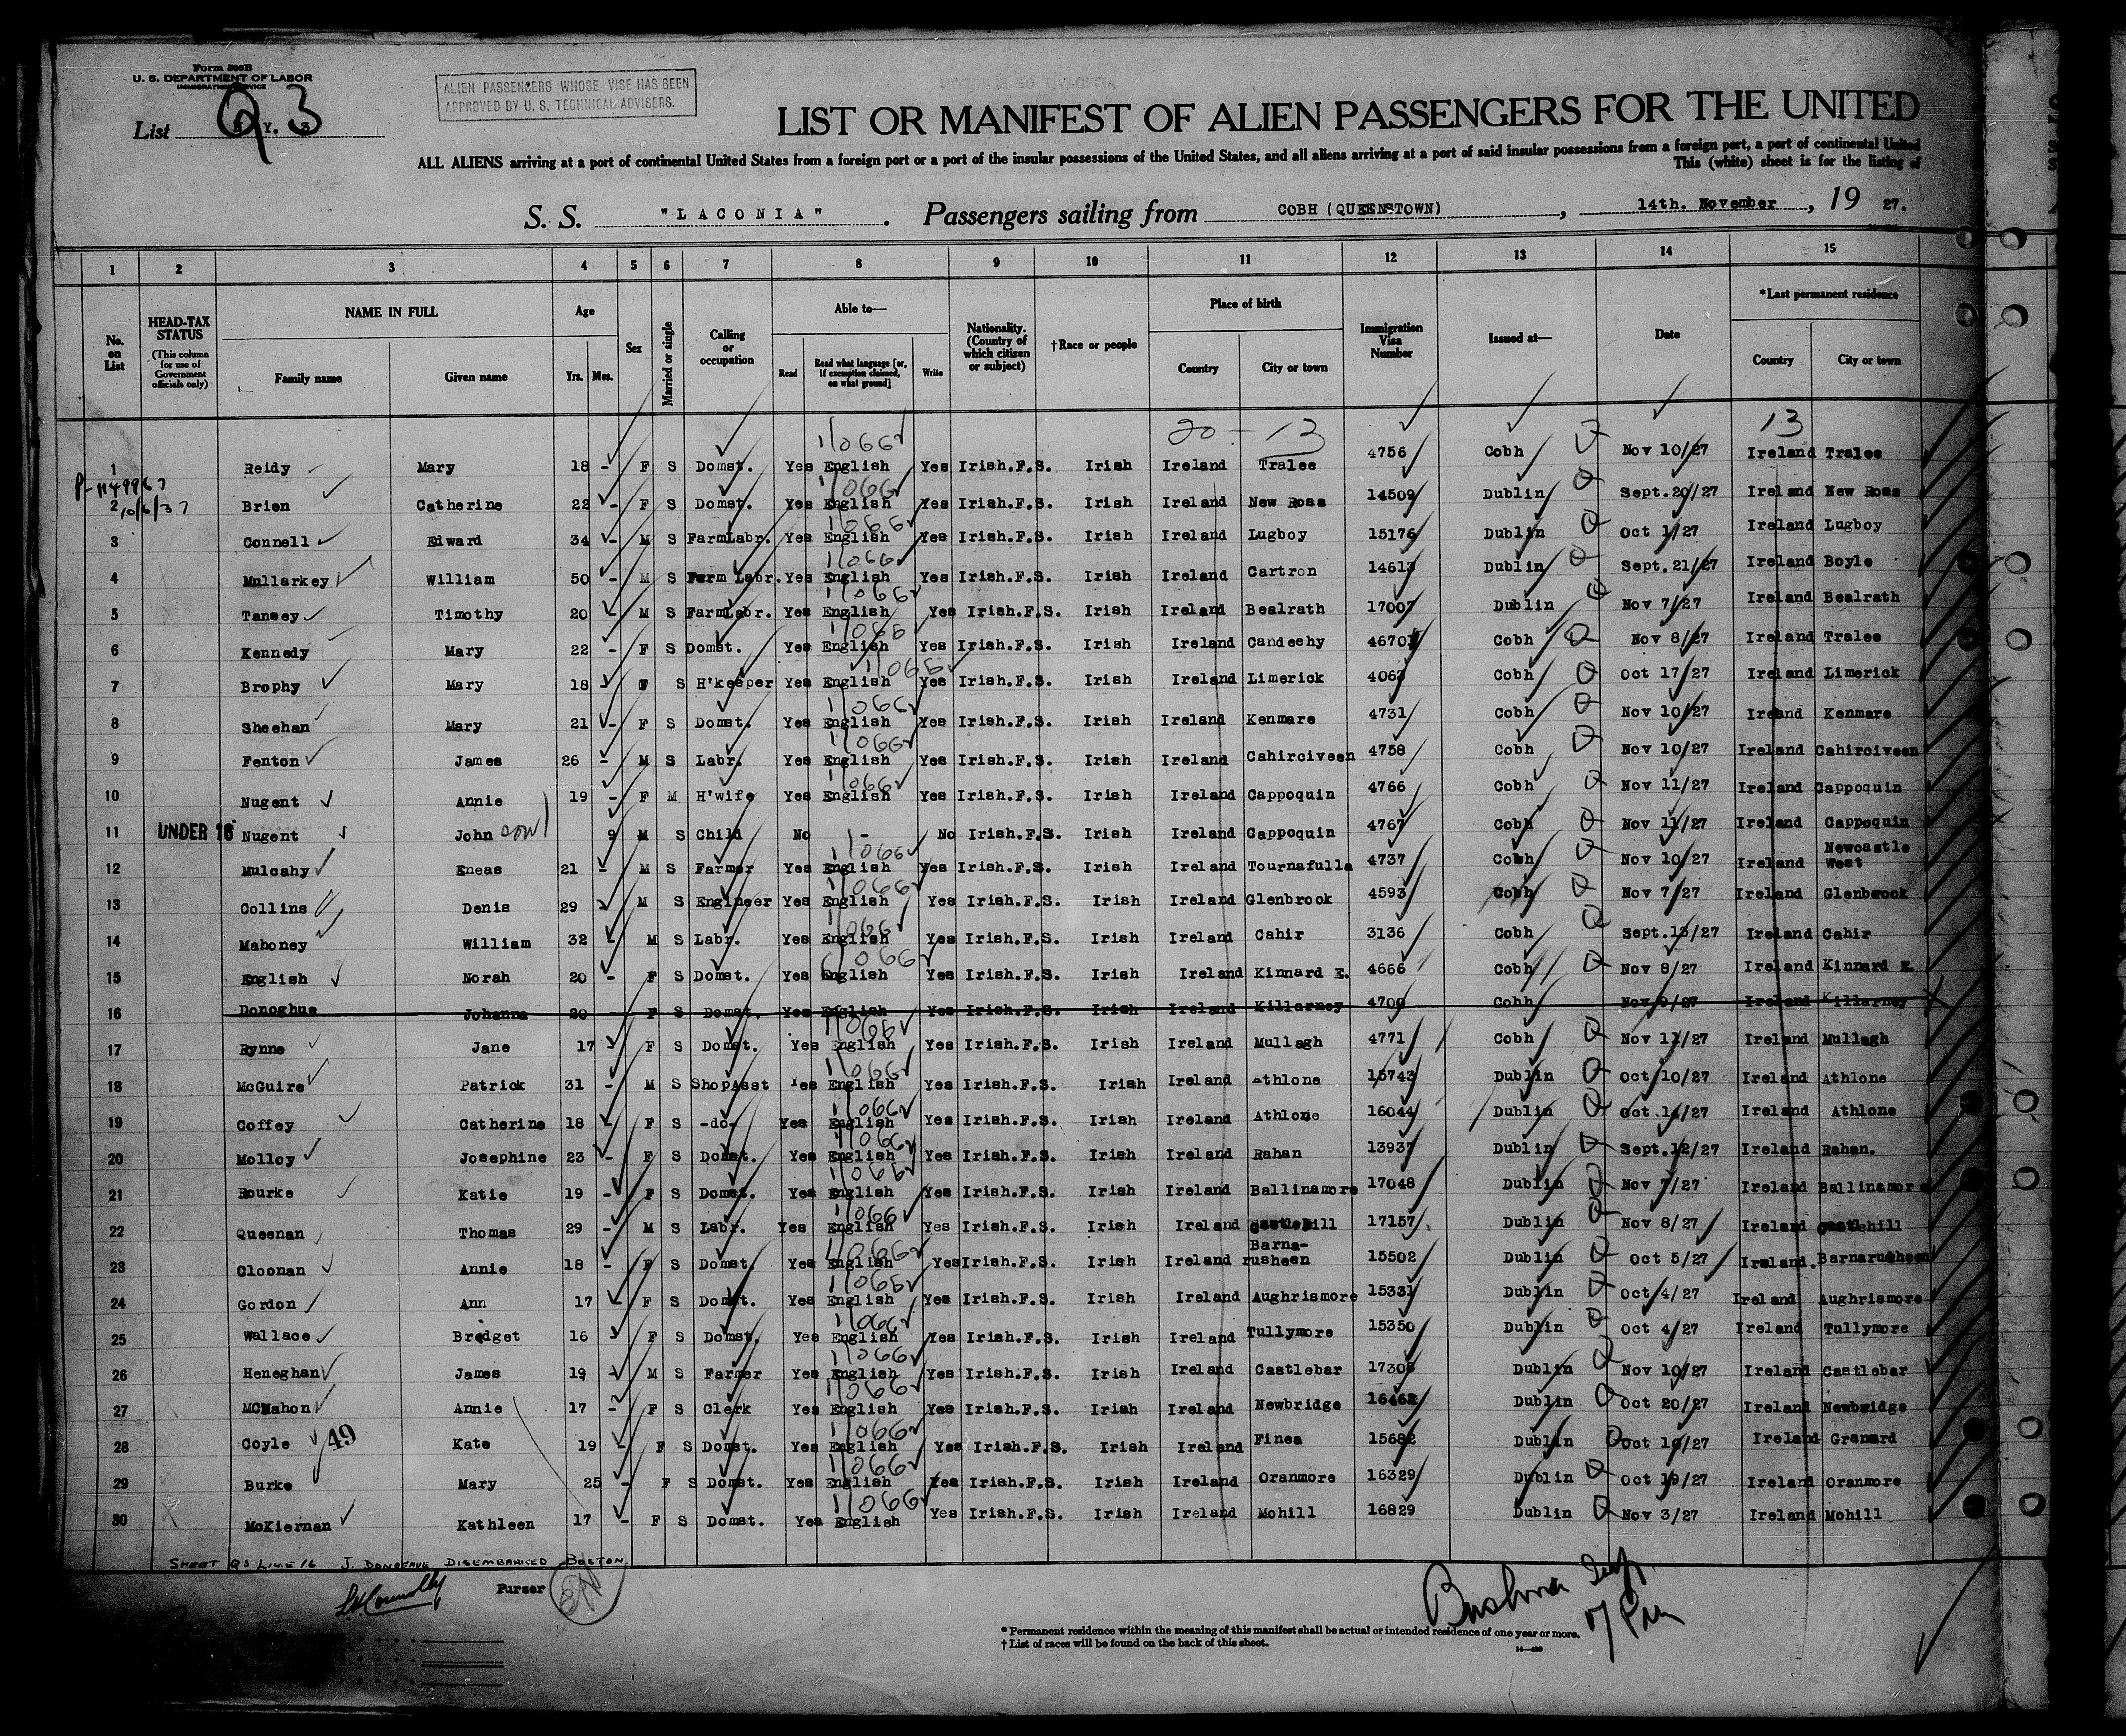 Form 500B
U. S. DEPARTMENT OF LABOR
IMMIGRATION SERVICE
List Q 3
ALIEN PASSENGERS WHOSE VISE HAS BEEN
APPROVED BY U. S. TECHNICAL ADVISERS.
LIST OR MANIFEST OF ALIEN PASSENGERS FOR THE UNITED
ALL ALIENS arriving at a port of continental United States from a foreign port or a port of the insular possessions of the United States, and all aliens arriving at a port of said insular possessions from a foreign port, a port of continental United
This (white) sheet is for the listing of
S. S. "LACONIA". Passengers sailing from COBH (QUEENSTOWN), 14th. November, 19 27.
1 2 3 4 5 6 7 8 9 10 11 12 13 14 15
No. on List
HEAD-TAX STATUS (This column for use of Government officials only)
NAME IN FULL Family name Given name
Age Yrs. Mos.
Sex
Married or single
Calling or occupation
Able to— Read Read what language [or, if exemption claimed, on what ground] Write
Nationality. (Country of which citizen or subject)
†Race or people
Place of birth Country City or town
Immigration Visa Number
Issued at—
Date
*Last permanent residence Country City or town
20 - 13 13
1 Reidy Mary 18 - F S Domst. Yes English Yes Irish.F.S. Irish Ireland Tralee 4756 Cobh Nov 10/27 Ireland Tralee
P-1149967
10/6/37
2 Brien Catherine 22 - F S Domst. Yes English Yes Irish.F.S. Irish Ireland New Ross 14509 Dublin Sept.20/27 Ireland New Ross
3 Connell Edward 34 - M S FarmLabr. Yes English Yes Irish.F.S. Irish Ireland Lugboy 15176 Dublin Oct 1/27 Ireland Lugboy
4 Mullarkey William 50 - M S Farm Labr. Yes English Yes Irish.F.S. Irish Ireland Cartron 14613 Dublin Sept.21/27 Ireland Boyle
5 Tansey Timothy 20 M S FarmLabr. Yes English Yes Irish.F.S. Irish Ireland Bealrath 17007 Dublin Nov 7/27 Ireland Bealrath
6 Kennedy Mary 22 - F S Domst. Yes English Yes Irish.F.S. Irish Ireland Candeehy 4670 Cobh Nov 8/27 Ireland Tralee
7 Brophy Mary 18 - F S H'keeper Yes English Yes Irish.F.S. Irish Ireland Limerick 4063 Cobh Oct 17/27 Ireland Limerick
8 Sheehan Mary 21 - F S Domst. Yes English Yes Irish.F.S. Irish Ireland Kenmare 4731 Cobh Nov 10/27 Ireland Kenmare
9 Fenton James 26 - M S Labr. Yes English Yes Irish.F.S. Irish Ireland Cahirciveen 4758 Cobh Nov 10/27 Ireland Cahirciveen
10 Nugent Annie 19 - F M H'wife Yes English Yes Irish.F.S. Irish Ireland Cappoquin 4766 Cobh Nov 11/27 Ireland Cappoquin
11 UNDER 16 Nugent John son 9 M S Child No - No Irish.F.S. Irish Ireland Cappoquin 4767 Cobh Nov 11/27 Ireland Cappoquin
12 Mulcahy Eneas 21 - M S Farmer Yes English Yes Irish.F.S. Irish Ireland Tournafulla 4737 Cobh Nov 10/27 Ireland Newcastle West
13 Collins Denis 29 M S Engineer Yes English Yes Irish.F.S. Irish Ireland Glenbrook 4593 Cobh Nov 7/27 Ireland Glenbrook
14 Mahoney William 32 - M S Labr. Yes English Yes Irish.F.S. Irish Ireland Cahir 3136 Cobh Sept.13/27 Ireland Cahir
15 English Norah 20 - F S Domst. Yes English Yes Irish.F.S. Irish Ireland Kinnard E. 4666 Cobh Nov 8/27 Ireland Kinnard E.
16 Donoghue Johanna 20 F S Domst. Yes English Yes Irish.F.S. Irish Ireland Killarney 4700 Cobh Nov 9/27 Ireland Killarney
17 Rynne Jane 17 - F S Domst. Yes English Yes Irish.F.S. Irish Ireland Mullagh 4771 Cobh Nov 11/27 Ireland Mullagh
18 McGuire Patrick 31 - M S ShopAsst Yes English Yes Irish.F.S. Irish Ireland Athlone 15743 Dublin Oct 10/27 Ireland Athlone
19 Coffey Catherine 18 - F S -do- Yes English Yes Irish.F.S. Irish Ireland Athlone 16044 Dublin Oct 14/27 Ireland Athlone
20 Molloy Josephine 23 - F S Domst. Yes English Yes Irish.F.S. Irish Ireland Rahan 13937 Dublin Sept.12/27 Ireland Rahan.
21 Rourke Katie 19 - F S Domst. Yes English Yes Irish.F.S. Irish Ireland Ballinamore 17048 Dublin Nov 7/27 Ireland Ballinamore
22 Queenan Thomas 29 - M S Labr. Yes English Yes Irish.F.S. Irish Ireland Castlehill 17157 Dublin Nov 8/27 Ireland Castlehill
23 Cloonan Annie 18 - F S Domst. Yes English Yes Irish.F.S. Irish Ireland Barna-rusheen 15502 Dublin Oct 5/27 Ireland. Barnarusheen
24 Gordon Ann 17 F S Domst. Yes English Yes Irish.F.S. Irish Ireland Aughrismore 15331 Dublin Oct 4/27 Ireland Aughrismore
25 Wallace Bredget 16 - F S Domst. Yes English Yes Irish.F.S. Irish Ireland Tullymore 15350 Dublin Oct 4/27 Ireland Tullymore
26 Heneghan James 19 - M S Farmer Yes English Yes Irish.F.S. Irish Ireland Castlebar 17308 Dublin Nov 10/27 Ireland Castlebar
27 McMahon Annie 17 - F S Clerk Yes English Yes Irish.F.S. Irish Ireland Newbridge Dublin Oct 20/27 Ireland Newbridge
28 Coyle 49 Kate 19 - F S Domst. Yes English Yes Irish.F.S. Irish Ireland Finea 15682 Dublin Oct 10/27 Ireland Granard
29 Burke Mary 25 - F S Domst. Yes English Yes Irish.F.S. Irish Ireland Oranmore 16329 Dublin Oct 19/27 Ireland Oranmore
30 McKiernan Kathleen 17 - F S Domst. Yes English Yes Irish.F.S. Irish Ireland Mohill 16829 Dublin Nov 3/27 Ireland Mohill
SHEET Q3 LINE 16 J. DONOGHUE DISEMBARKED BOSTON.
Purser
* Permanent residence within the meaning of this manifest shall be actual or intended residence of one year or more.
† List of races will be found on the back of this sheet.